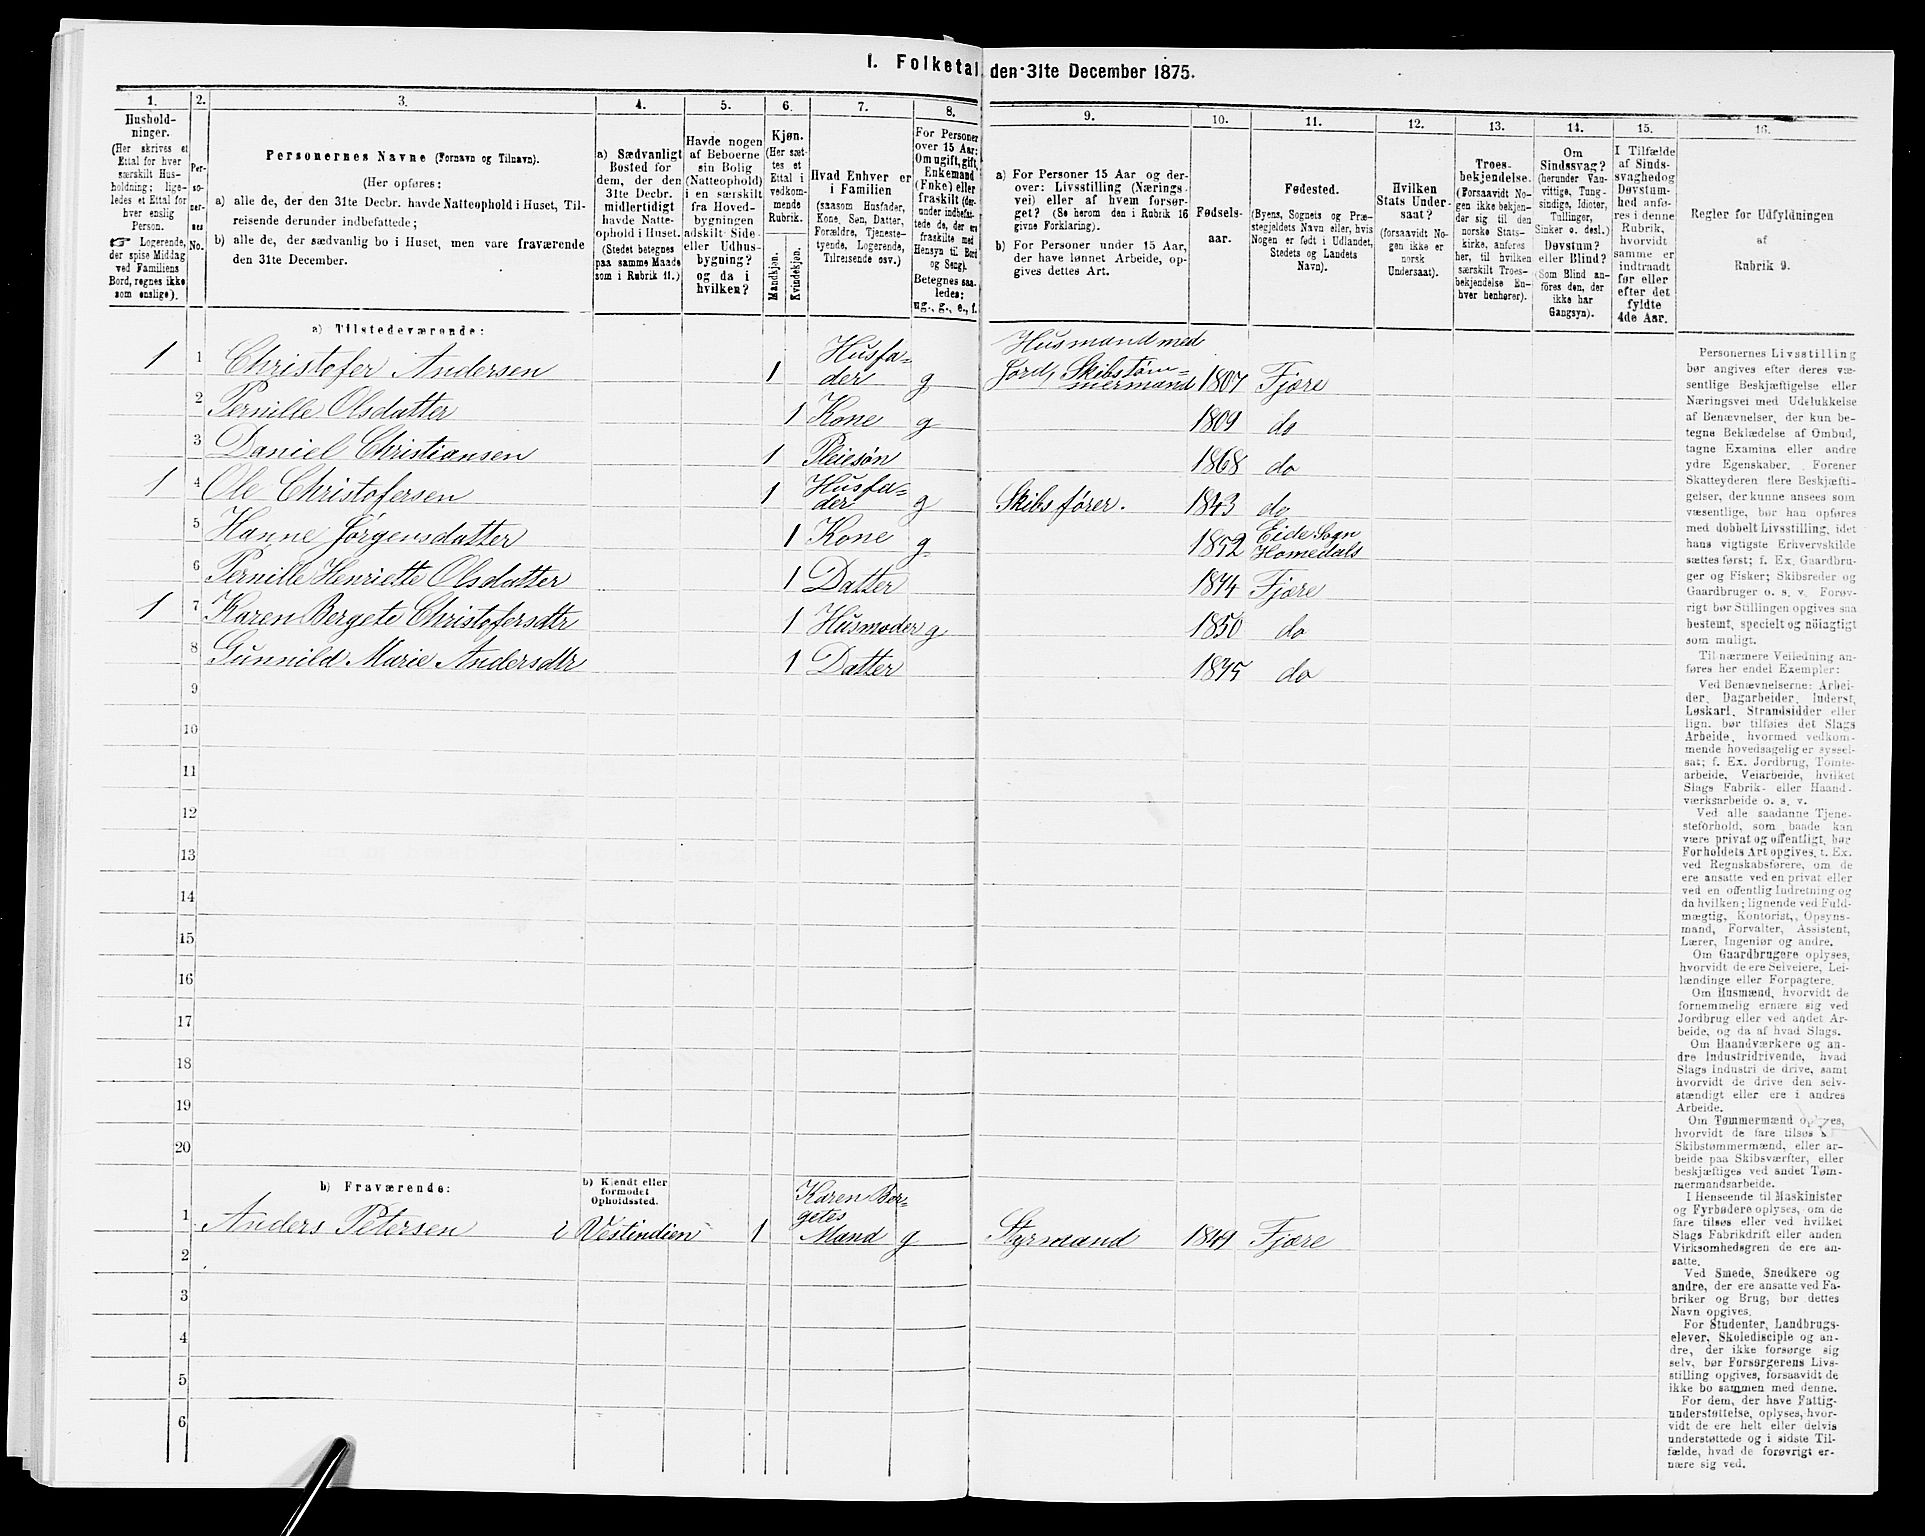 I. Folketal den 31te December 1875.
1. 2. 3. 4. 5. 6. 7. 8. 9. 10. 11. 12. 13. 14. 15. 16.
Hushold-
ninger.
(Her skrives et
Ettal for hver
særskilt Hus-
holdning; lige-
ledes et Ettal for
hver enslig
Person.
☞ Logerende,
der spise Middag
ved Familiens
Bord, regnes ikke
som enslige).
Per-
so-
ner-
nes
No.
Personernes Navne (Fornavn og Tilnavn).
(Her opføres:
a) alle de, der den 31te Decbr. havde Natteophold i Huset, Til-
reisende derunder indbefattede;
b) alle de, der sædvanlig bo i Huset, men vare fraværende
den 31te December.
a) Sædvanligt
Bosted for
dem, der den
31te Decbr.
midlertidigt
havde Natte-
ophold i Huset.
(Stedet betegnes
paa samme Maade
som i Rubrik 11.)
Havde nogen
af Beboerne
sin Bolig
(Natteophold)
i en særskilt
fra Hoved-
bygningen
adskilt Side-
eller Udhus-
bygning?
og da i
hvilken?
Kjøn.
(Her sæt-
tes et
Ettal i
vedkom-
mende
Rubrik.
Mandkjøn.
Kvindekjøn.
Hvad Enhver er
i Familien
(saasom Husfader,
Kone, Søn, Datter,
Forældre, Tjeneste-
tyende, Logerende,
Tilreisende osv.)
For Personer
over 15 Aar:
Om ugift, gift,
Enkemand
(Enke) eller
fraskilt (der-
under indbefat-
tede de, der ere
fraskilte med
Hensyn til Bord
og Seng).
Betegnes saa-
ledes:
ug., g., e., f.
a) For Personer 15 Aar og der-
over: Livsstilling (Nærings-
vei) eller af hvem forsør-
get? (Se herom den i Rubrik 16
givne Forklaring).
b) For Personer under 15 Aar,
der have lønnet Arbeide, op-
gives dettes Art.
Fødsels-
aar.
Fødested.
(Byens, Sognets og Præ-
stegjeldets Navn eller, hvis
Nogen er født i Udlandet,
Stedets og Landets
Navn).
Hvilken
Stats Under-
saat?
(forsaavidt No-
gen ikke er
norsk
Undersaat).
Troes-
bekjendelse.
(Forsaavidt No-
gen ikke bekjen-
der sig til den
norske Stats-
kirke, anføres
her, til hvilken
særskilt Troes-
bekjendelse En-
hver henhører).
Om
Sindssvag?
(herunder Van-
vittige, Tung-
sindige, Idioter,
Tullinger,
Sinker o. desl.)
Døvstum?
eller Blind?
(Som Blind an-
føres den, der
ikke har
Gangsyn).
I Tilfælde
af Sinds-
svaghed og
Døvstum-
hed anfø-
res i denne
Rubrik,
hvorvidt
samme er
indtraadt
før eller
efter det
fyldte
4de Aar.
Regler for Udfyldningen
af
Rubrik 9.
a) Tilstedeværende:
1 1 Christofer Andersen 1 Husfa- der g Husmand med Jord, Skibstøm- mermand 1807 Fjære
2 Pernille Olsdatter 1 Kone g 1809 do
3 Daniel Christiansen 1 Pleiesøn 1868 do
1 4 Ole Christofersen 1 Husfa- der g Skibsfører. 1843 do
5 Hanne Jørgensdatter 1 Kone g 1852 Eide Sogn, Homedals
6 Pernille Henriette Olsdatter 1 Datter 1874 Fjære
1 7 Karen Bergete Christofersdtr 1 Husmoder g 1850 do
8 Gunnild Marie Andersdtr 1 Datter 1875 do
9
10
11
12
13
14
15
16
17
18
19
20
b) Fraværende:
b) Kjendt eller
formodet
Opholdssted.
1 Anders Petersen Vestindien 1 Karen Ber- getes Mand g Styrmand Fjære
2
3
4
5
6
Personernes Livsstilling
bør angives efter deres væ-
sentlige Beskjæftigelse eller
Næringsvei med Udelukkelse
af Benævnelser, der kun be-
tegne Beklædelse af Ombud,
tagne Examina eller andre
ydre Egenskaber. Forener
Skatteyderen flere Beskjæfti-
gelser, der kunne ansees som
væsentlige, bør han opføres
med dobbelt Livsstilling, idet
hans vigtigste Erhvervskilde
sættes først; f. Ex. Gaardbru-
ger og Fisker; Skibsreder og
Gaardbruger o. s. v. Forøv-
rigt bør Stillingen opgives saa
bestemt, specielt og nöiagtigt
som muligt.
Til nærmere Veiledning an-
føres her endel Exempler:
Ved Benævnelserne: Arbei-
der, Dagarbeider, Inderst,
Løskarl, Strandsidder eller
lign. bør tilføies det Slags
Arbeide, hvormed vedkom-
mende hovedsagelig er syssel-
sat; f. Ex. Jordbrug, Tomte-
arbeide, Veiarbeide, hvilket
Slags Fabrik- eller Haand-
værksarbeide o. s. v.
Ved alle saadanne Tjene-
steforhold, som baade kan
være privat og offentligt, bør
Forholdets Art opgives, t. Ex.
ved Regnskabsførere, om de
ere ansatte ved en privat eller
ved en offentlig Indretning og
da hvilken; lignende ved Fuld-
mægtig, Kontorist, Opsyns-
mand, Forvalter, Assistent,
Lærer, Ingeniør og andre.
Om Gaardbrugere oplyses,
hvorvidt de ere Selveiere, Lei-
lændinge eller Forpagtere.
Om Husmænd, hvorvidt de
fornemmelig ernære sig ved
Jordbrug eller ved andet Ar-
beide, og da af hvad Slags.
Om Haandværkere og an-
dre Industridrivende, hvad
Slags Industri de drive, samt
hvorvidt de drive den selv-
stændigt eller ere i andres
Arbeide.
Om Tømmermænd oplyses,
hvorvidt de fare tilsøs som
Skibstømmermænd, eller ar-
beide paa Skibsværfter, eller
beskjæftiges ved andet Tøm-
mermandsarbeide.
I Henseende til Maskinister
og Fyrbødere oplyses, om de
fare tilsøs eller ved hvilket
Slags Fabrikdrift eller anden
Virksomhedsgren de ere an-
satte.
Ved Smede, Snedkere og
andre, der ere ansatte ved Fa-
briker og Brug, bør dettes
Navn opgives.
For Studenter, Landbrugs-
elever, Skoledisciple og an-
dre, der ikke forsørge sig
selv, bør Forsørgerens Livs-
stilling opgives, forsaavidt de
ikke bo sammen med denne.
For dem, der have Fattig-
understøttelse, oplyses, hvor-
vidt de ere helt eller delvis
understøttede og i sidste Til-
fælde, hvad de forøvrigt er-
nære sig ved.